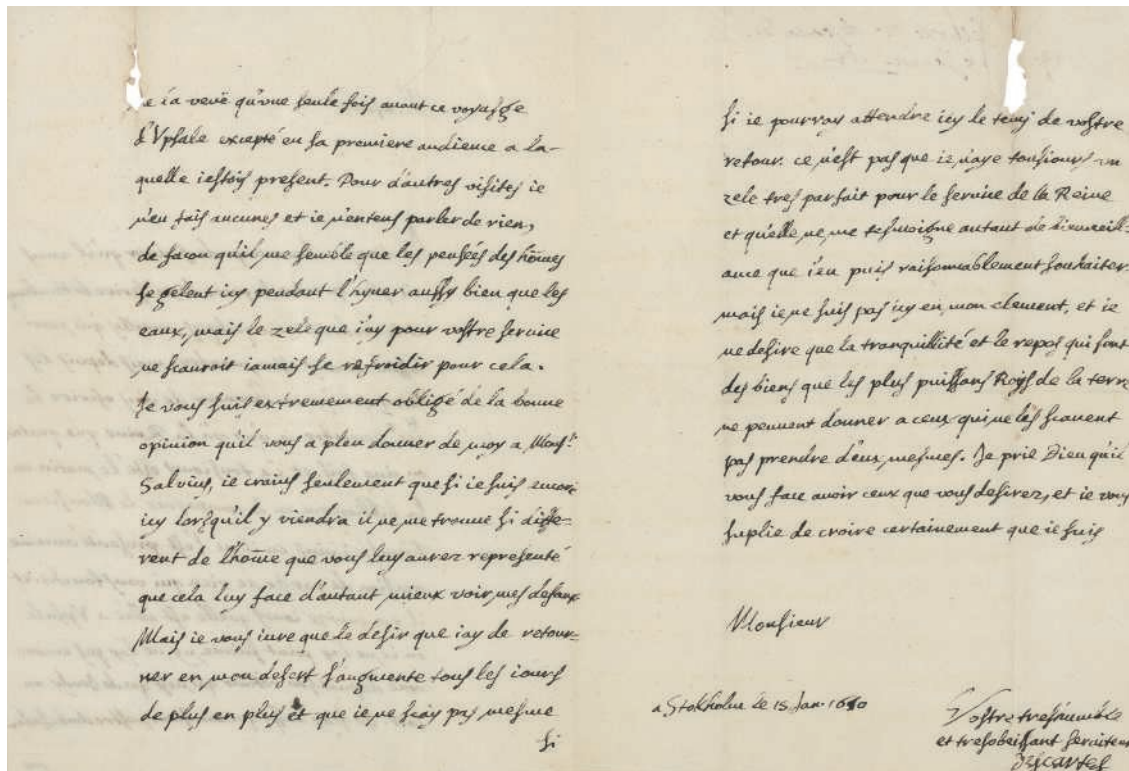 ie l'a veuë qu'vne seule fois auant ce voyasge
d'Vpsale excepté en sa premiere audience a la-
quelle iestois present. Pour d'autres visites ie
n'en fais aucunes et ie n'entens parler de rien,
de facon qu'il me semble que les pensées des hōmes
se gelent icy pendant l'hyuer aussy bien que les
eaux, mais le zele que i'ay pour vostre seruice
ne scauroit iamais se refroidir pour cela.
Je vous suis extremement obligé de la bonne
opinion qu'il vous a pleu donner de moy a Monsr
Saluius, ie crains seulement que si ie suis encore
icy lorsqu'il y viendra il ne me trouue si diffe-
rent de l'hōme que vous luy aurez representé
que cela luy face d'autant mieux voir mes defaux
Mais ie vous iure que le desir que iay de retour-
ner en mon desert s'augmente tous les iours
de plus en plus et que ie ne scay pas mesme
si
si ie pourray attendre icy le tems de vostre
retour. ce n'est pas que ie n'aye tousiours vn
zele tres parfait pour le seruice de la Reine
et qu'elle ne me tesmoigne autant de bienueill-
ance que i'en puis raisonnablement souhaiter.
mais ie ne suis pas icy en mon element, et ie
ne desire que la tranquillité et le repos qui sont
des biens que les plus puissans Roys de la terre
ne peuuent donner a ceux qui ne les scauent
pas prendre d'eux mesmes. Je prie Dieu qu'il
vous face auoir ceux que vous desirez, et ie vous
suplie de croire certainement que ie suis
Monsieur
a Stokholm le 15 Jan. 1650
Vostre treshumble
et tresobeissant seruiteur
Descartes